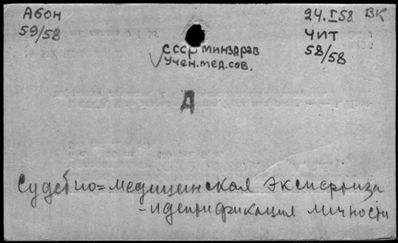 Абон
59/58
24.I58 ВК
ЧИТ
58/58
СССР Минздрав
Учен.мед.сов.
Д
Судебно=медицинская экспертиза
-идентификация личности